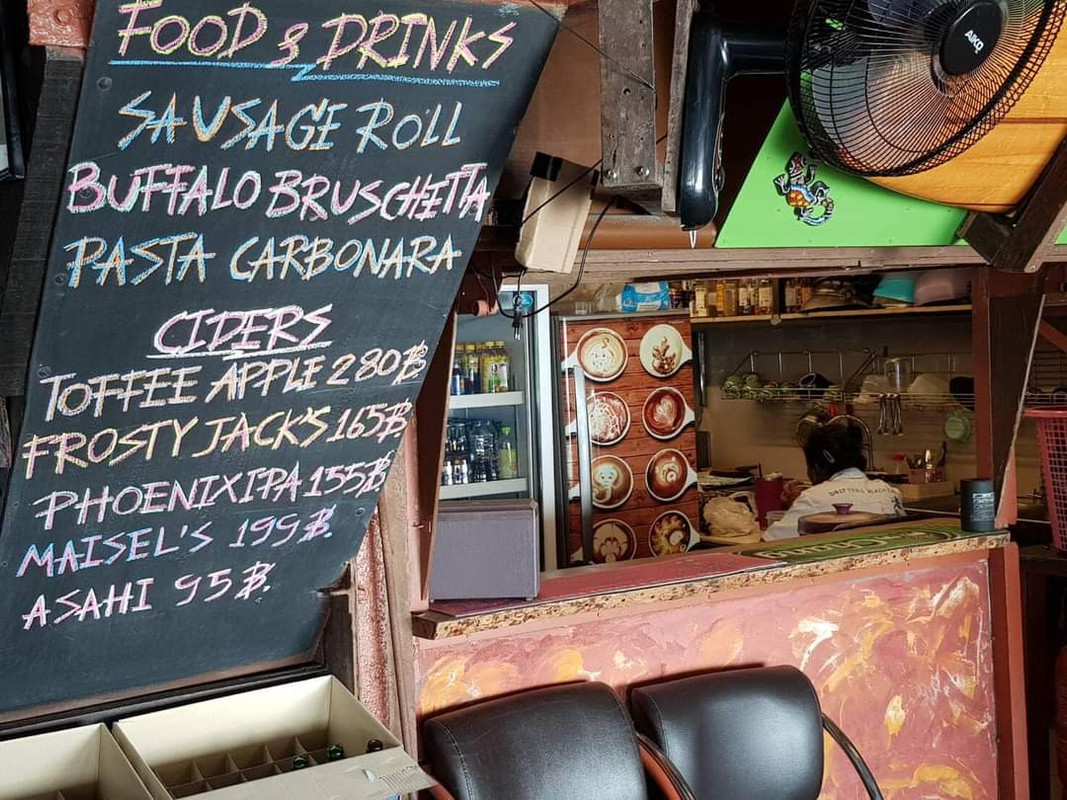 FOOD & DRINKS
SAUSAGE ROLL
BUFFALO BRUSCHETTA
PASTA CARBONARA
CIDERS
TOFFEE APPLE 280฿
FROSTY JACK'S 165฿
PHOENIX IPA 155฿
MAISEL'S 199฿.
ASAHI 95฿.
AIKO